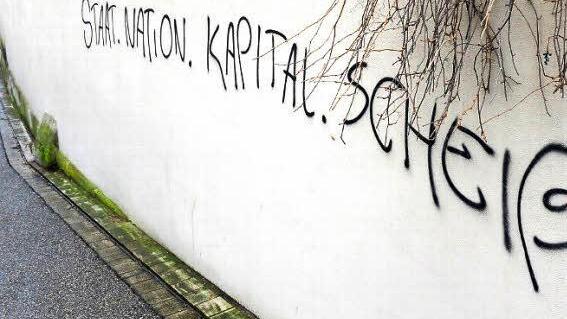 STAAT. NATION. KAPITAL. SCHEIß